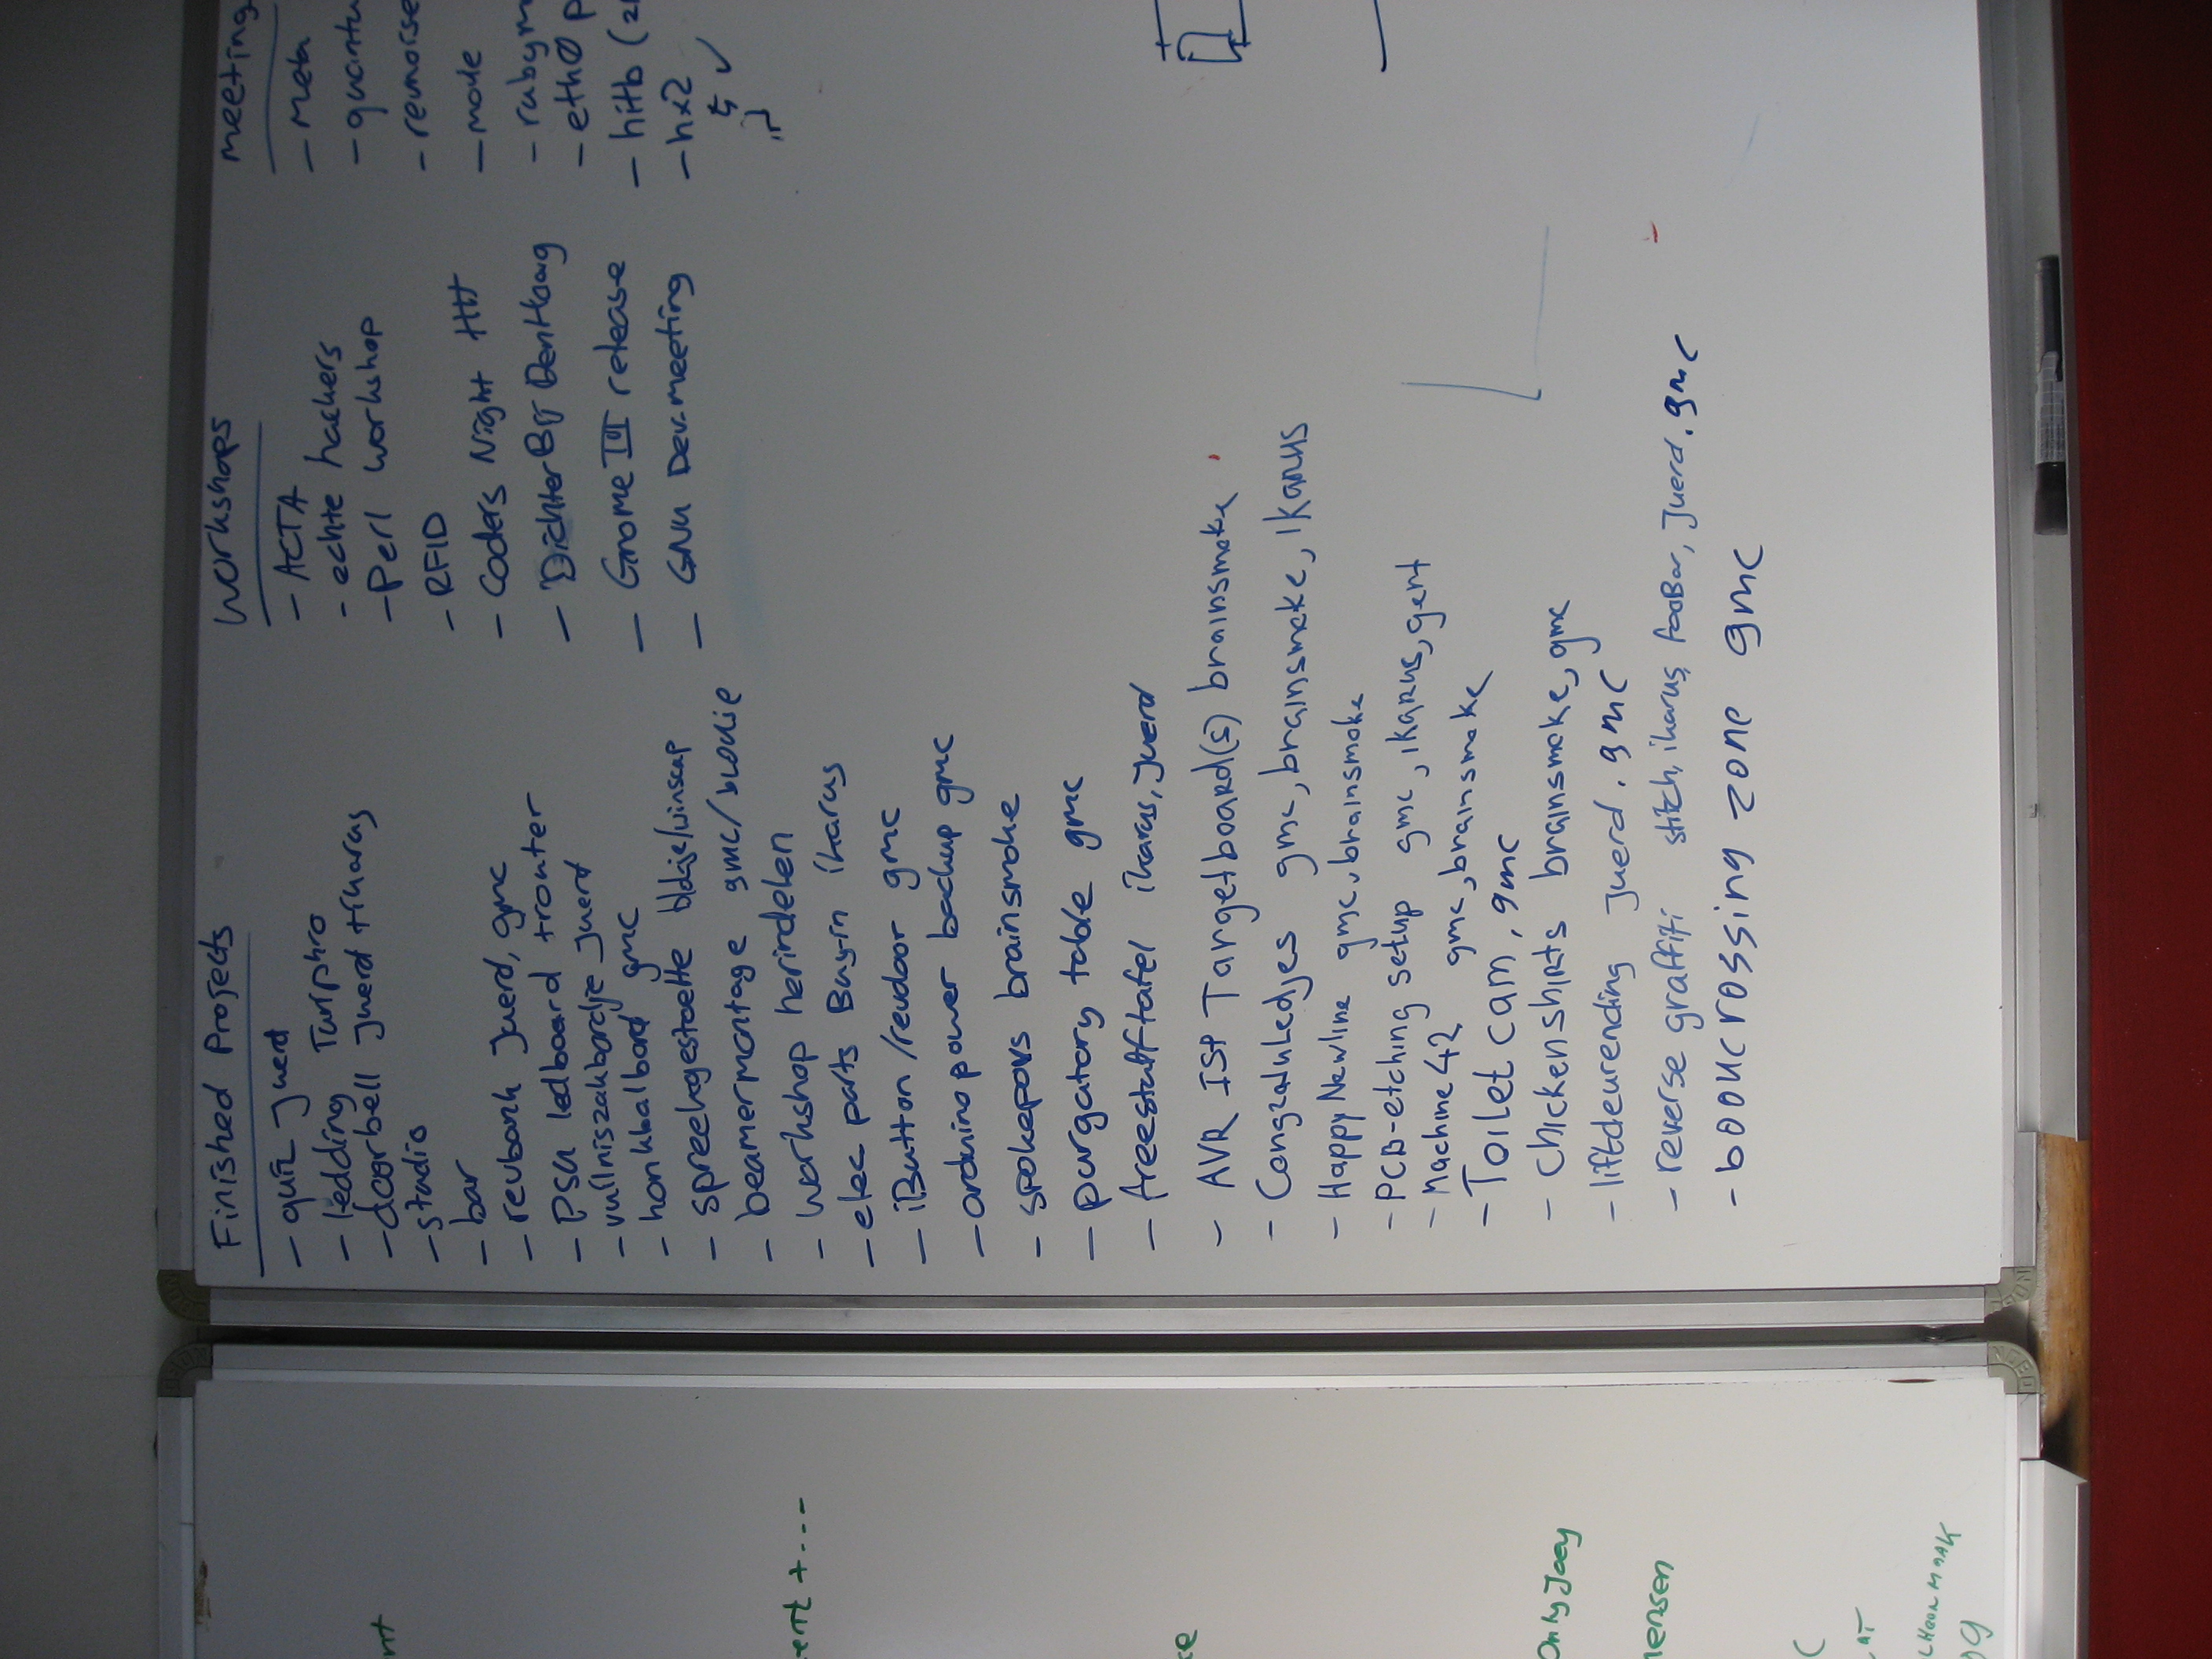 Finished Projects
- quiz Juerd
- ledding Turiphro
- doorbell Juerd + ikarus
- studio
- bar
- revbank Juerd, gmc
- PSU ledboard tronter
- vuilniszakbordje Juerd
- honkbalbord gmc
- spreekgestoelte bldzje/winscap
- beamermontage gmc/blokje
- workshop herindelen
- elec parts Buy-in ikarus
- iButton/revdoor gmc
- arduino power backup gmc
- spokepovs brainsmoke
- purgatory table gmc
- freestufftafel ikarus, Juerd
- AVR ISP Targetboard(s) brainsmoke
- Congratuledjes gmc, brainsmoke, ikarus
- Happy Newline gmc, brainsmoke
- PCB-etching setup gmc, ikarus, gert
- Machine 42 gmc, brainsmoke
- Toilet cam, gmc
- Chickenshirts brainsmoke, gmc
- liftdeurending Juerd. gmc
- reverse graffiti stitch, ikarus, fooBar, Juerd. gmc
- booucrossing zone gmc
Workshops
- ACTA
- echte hackers
- Perl workshop
- RFID
- Coders Night
- Dichter Bij Den Haag
- Gnome III release
- GNU Dev-meeting
meeting
- meta
- quantu
- revnoise
- mode
- rubym
- eth0 p
- hitb (
- hx2
ert + ....
Only Joey
mensen